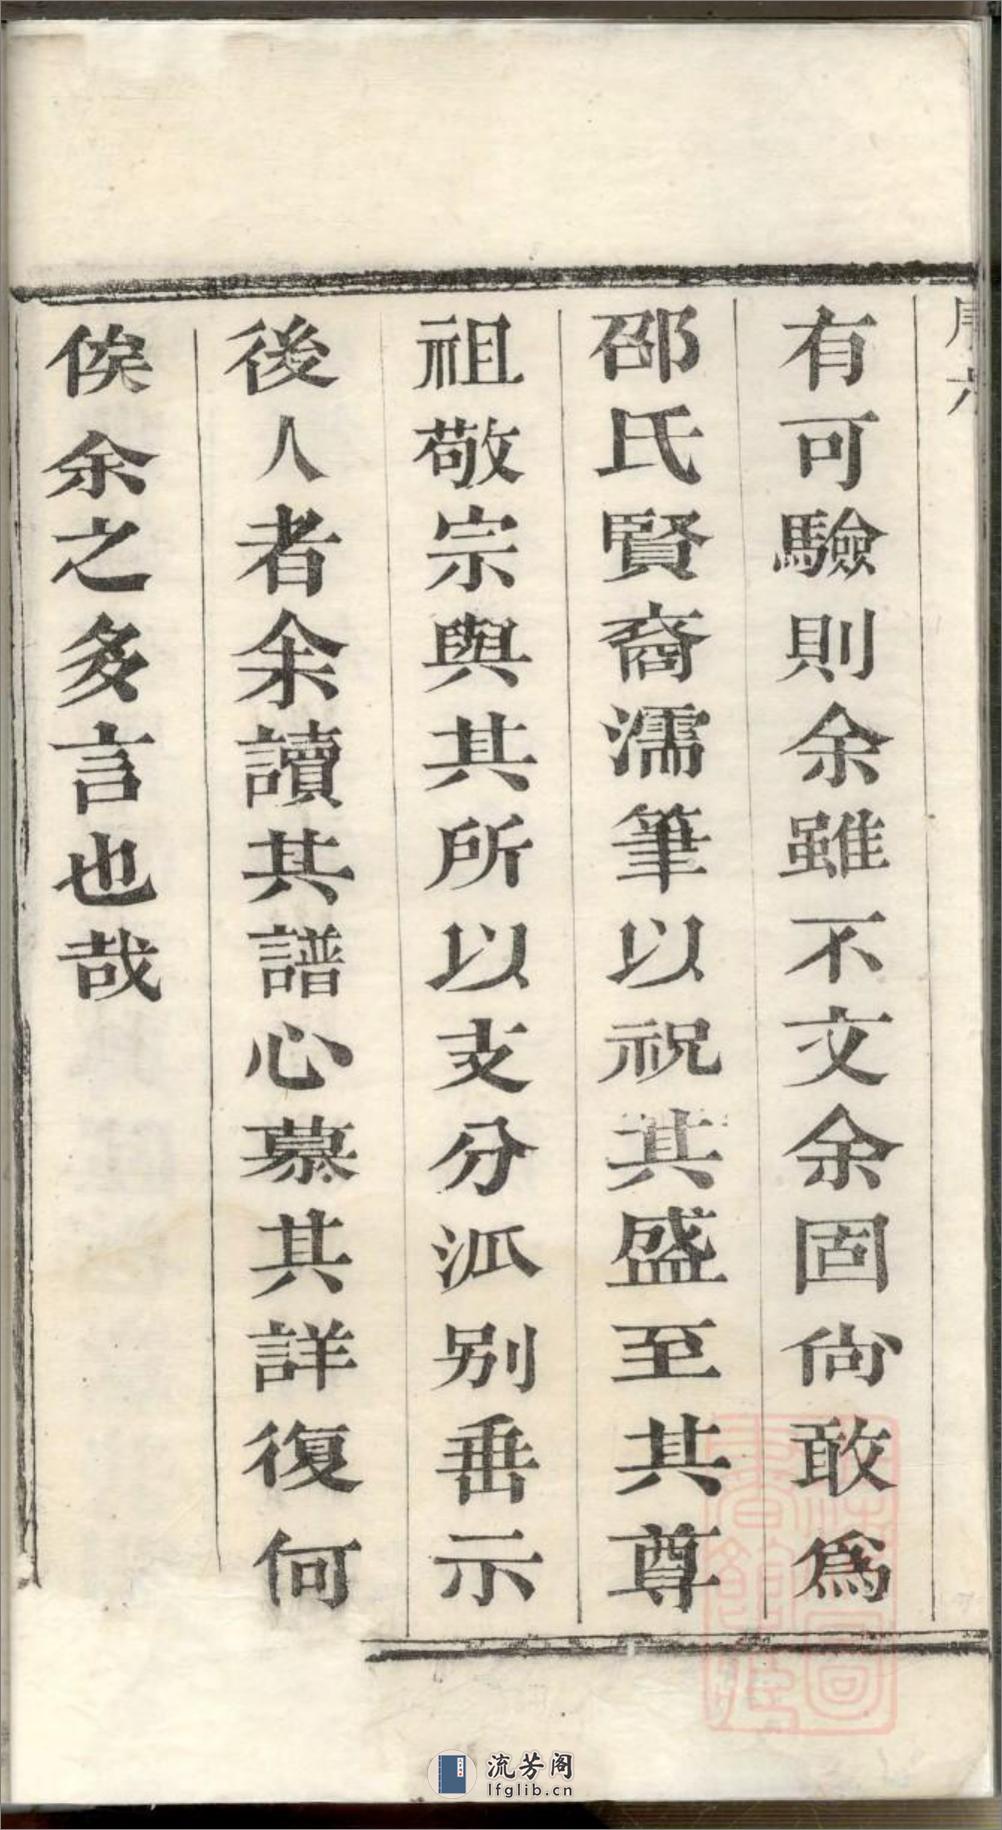 有可驗則余雖不文余固尙敢爲
邵氏賢裔濡筆以祝其盛至其尊
祖敬宗與其所以支分派别垂示
後人者余讀其譜心慕其詳復何
俟余之多言也哉
流芳阁
lfglib.cn